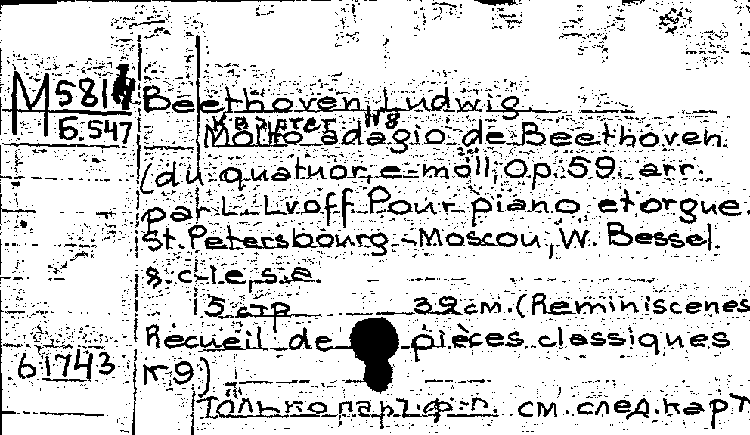 М 5814 Beethoven, Ludwig.
Квартет №8
Б.547 Molto adagio de Beethoven.
(du quatuor, e-moll, Op. 59. arr.
par L. Lvoff. Pour piano et orgue.
St. Petersbourg-Moscou, W. Bessel.
& c-ie, s.a.
5 стр 32 см. (Reminiscenes
Recueil de pièces classiques
61743 №9)
Только парт. ф-п. см. след. карт